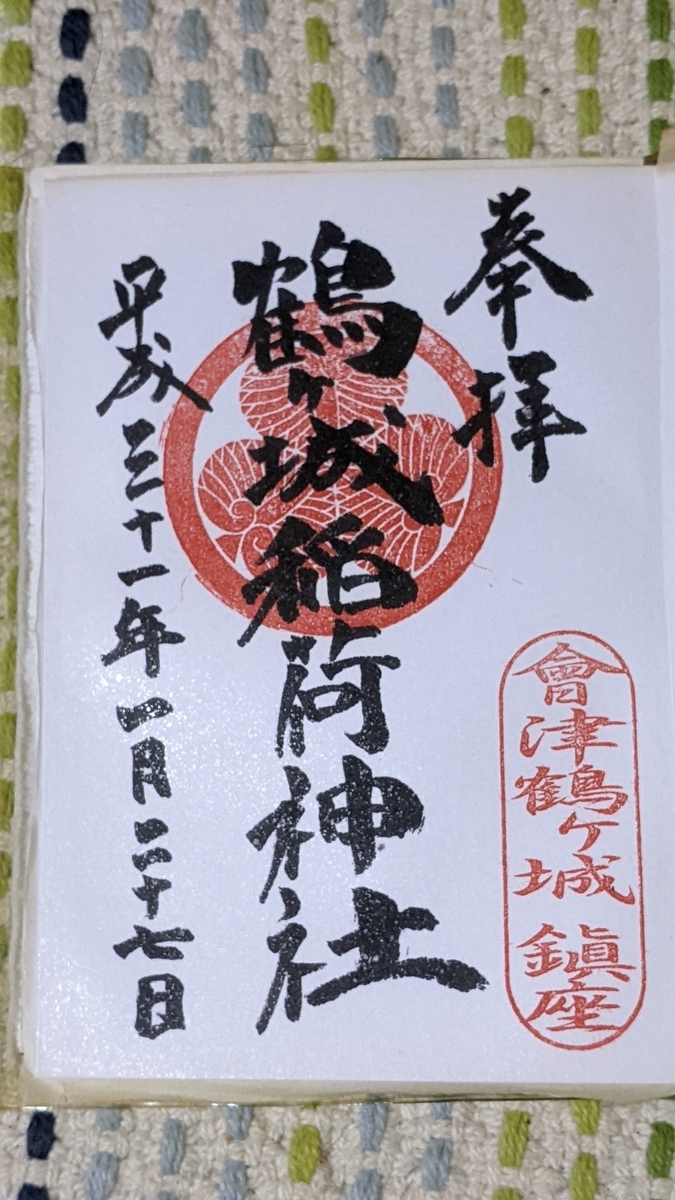 奉拝
會津鶴ケ城鎮座
鶴ヶ城稲荷神社
平成三十一年一月二十七日